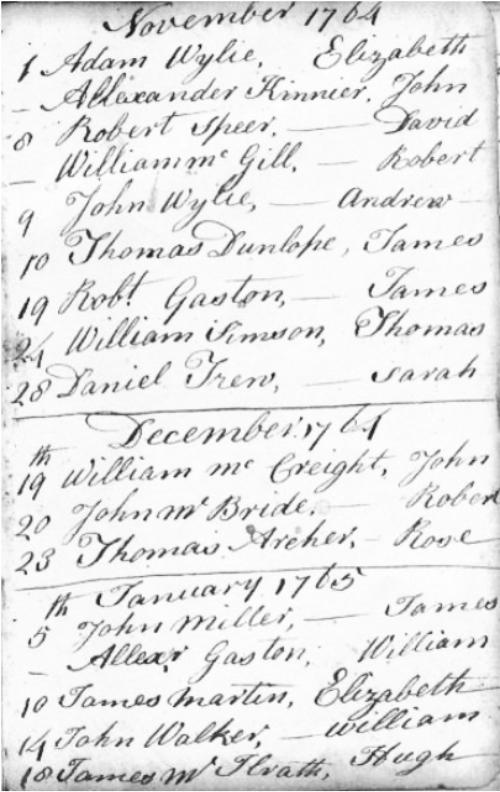 November 1764
1 Adam Wylie, Elizabeth
- Allexander Kinnier, John
8 Robert Speer, — David
- William mc Gill, — Robert
9 John Wylie, — Andrew
10 Thomas Dunlope, James
19 Robt Gaston, — James
24 William Simson, Thomas
28 Daniel Trew, — Sarah
December 1764
19th William mc Creight, John
20 John Mc Bride, — Robert
23 Thomas Archer, - Rose
January 1765
5th John Miller, — James
- Allexr Gaston, William
10 James Martin, Elizabeth
14 John Walker, — William
18 James Mc Ilrath, Hugh